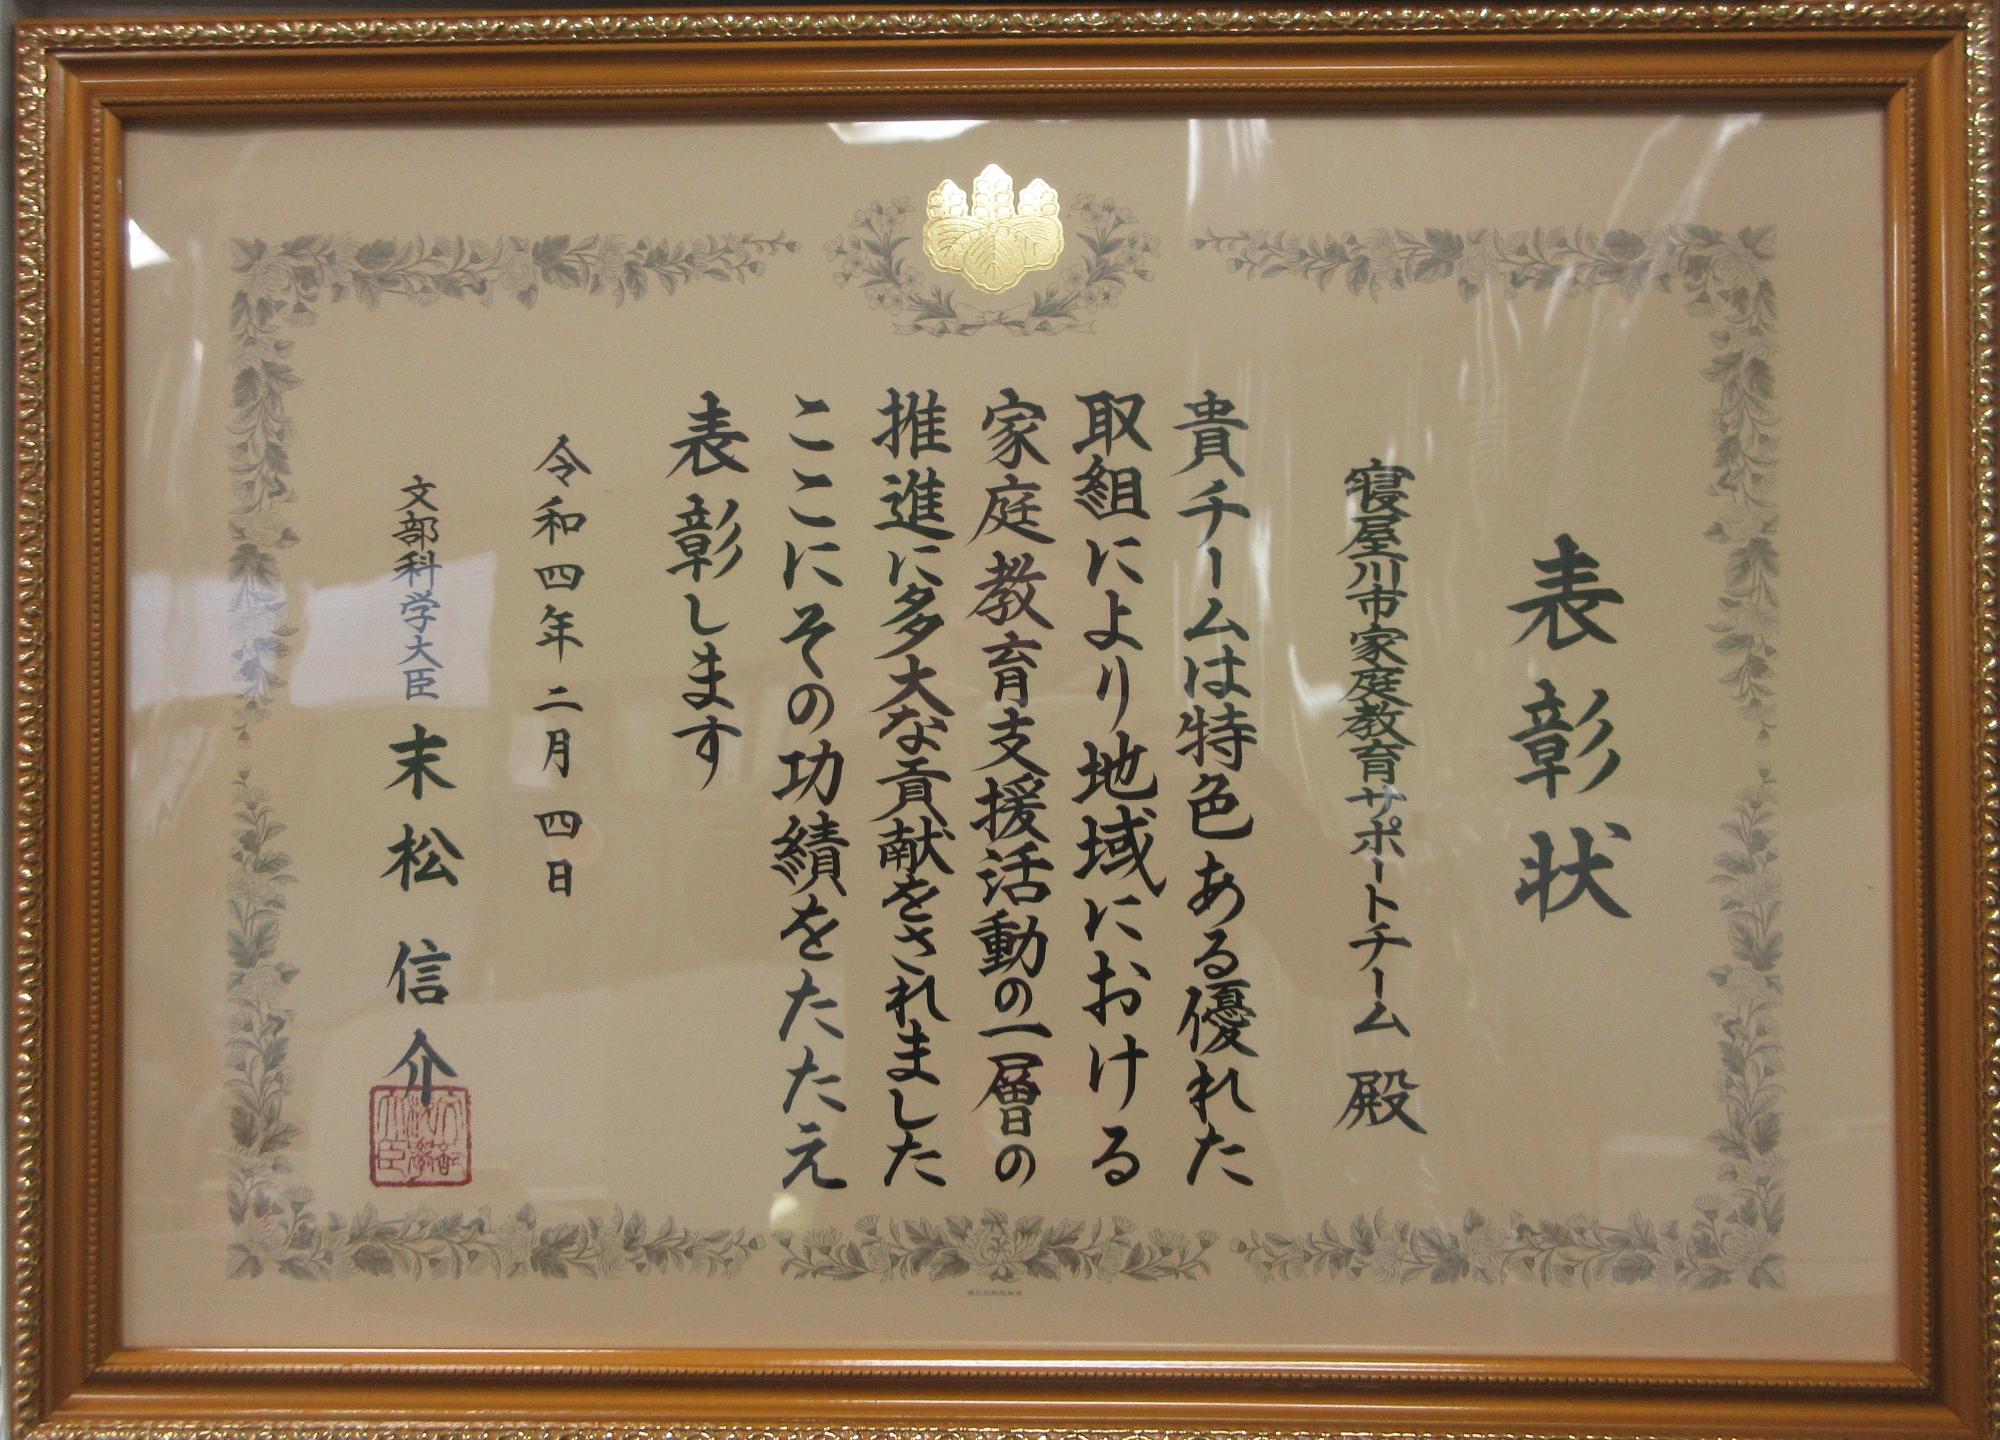 表彰状
寝屋川市家庭教育サポートチーム 殿
貴チームは特色ある優れた
取組により地域における
家庭教育支援活動の一層の
推進に多大な貢献をされました
ここにその功績をたたえ
表彰します
令和四年二月四日
文部科学大臣 末松信介